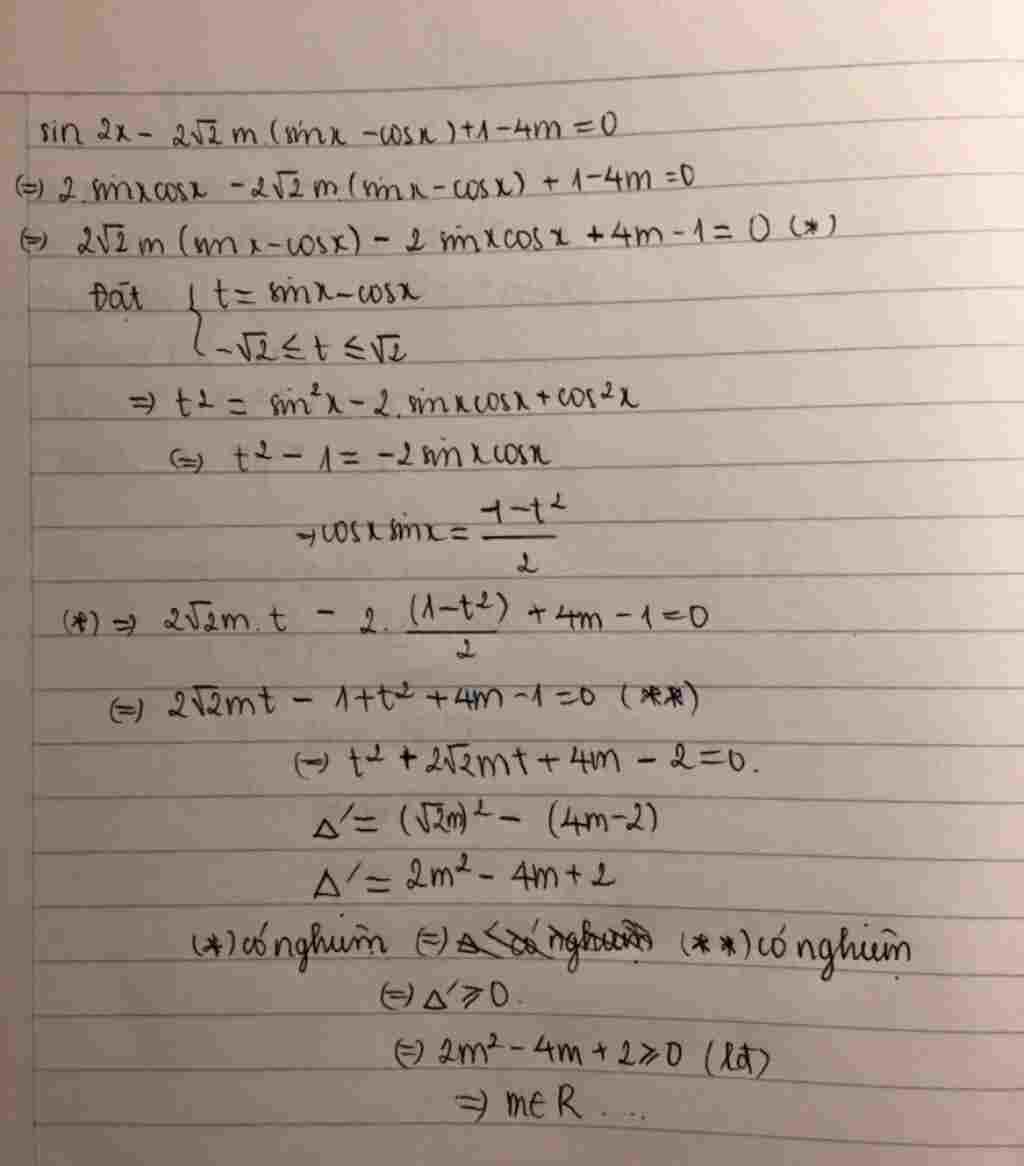 sin 2x - 2√2 m (sinx - cosx) + 1 - 4m = 0
(=) 2.sinxcosx - 2√2 m (sinx - cosx) + 1 - 4m = 0
(=) 2√2 m (sinx - cosx) - 2 sinxcosx + 4m - 1 = 0 (*)
Đặt { t = sinx - cosx
-√2 ≤ t ≤ √2
=) t² = sin²x - 2.sinxcosx + cos²x
(=) t² - 1 = -2sinxcosx
→ cosx sinx = (1-t²)/2
(*) =) 2√2m.t - 2.(1-t²)/2 + 4m - 1 = 0
(=) 2√2mt - 1 + t² + 4m - 1 = 0 (**)
(=) t² + 2√2mt + 4m - 2 = 0.
Δ' = (√2m)² - (4m-2)
Δ' = 2m² - 4m + 2
(*) có nghiệm (=) (**) có nghiệm
(=) Δ' ≥ 0.
(=) 2m² - 4m + 2 ≥ 0 (lđ)
=) m∈R ....